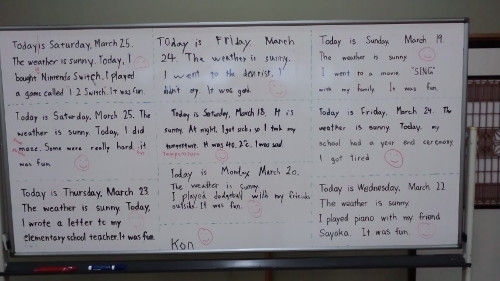 Today is Saturday, March 25.
The weather is sunny. Today, I
bought Nintendo Switch. I played
a game called 1 2 Switch. It was fun.
Today is Friday March
24. The weather is sunny.
I went to the dentist. I
didn't cry. It was good.
Today is Sunday, March 19.
The weather is sunny
I went to a movie. "SING"
with my family. It was fun.
Today is Saturday, March 25. The
weather is sunny. Today, I did
maze. Some were really hard. it
was fun.
Today is Saturday, March 18. It is
sunny. At night, I got sick, so I took my
temperature. It was 40.2°c. I was sad
temperature
Today is Friday, March 24. The
weather is sunny. Today, my
school had a year end ceremony.
I got tired
Today is Thursday, March 23.
The weather is sunny. Today,
I wrote a letter to my
elementary school teacher. It was fun.
Today is Monday, March 20.
The weather is sunny.
I played dodgeball with my friends
outside. It was fun.
Kon
Today is Wednesday, March 22
The weather is sunny.
I played piano with my friend
Sayaka. It was fun.